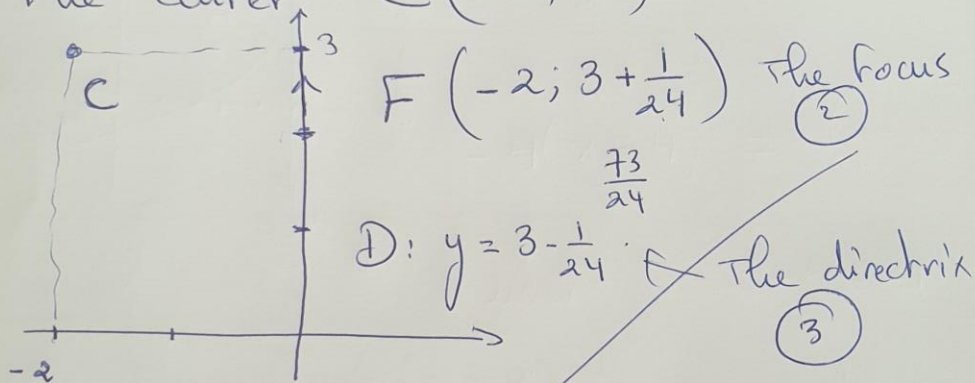 The C(
3
C
F (-2; 3 + 1/24) The Focus
2
73/24
D: y = 3 - 1/24 . The directrix
3
-2